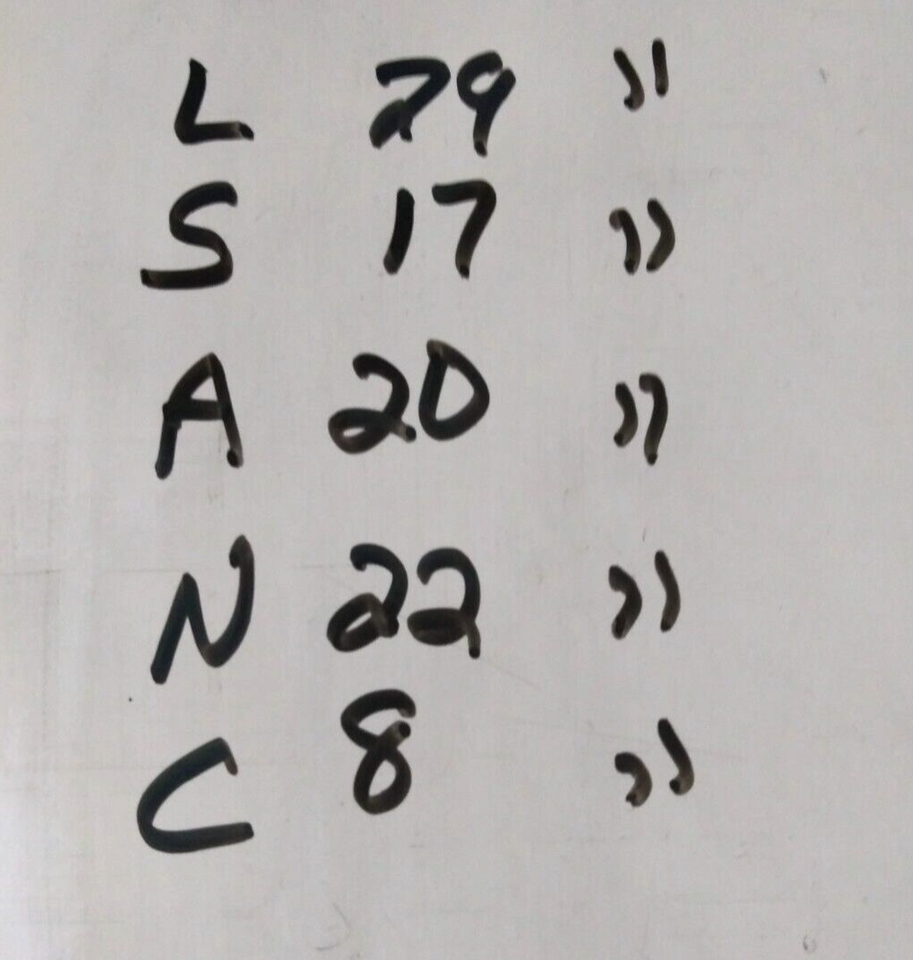 L 29 "
S 17 "
A 20 "
N 22 "
C 8 "